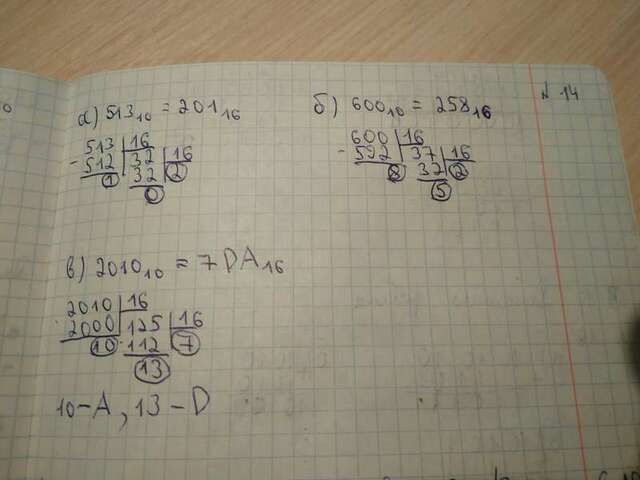 а) 513₁₀ = 201₁₆
513 | 16
- 512 | 32 | 16
1 32 2
0
б) 600₁₀ = 258₁₆
600 | 16
- 592 | 37 | 16
8 32 2
5
№ 14
в) 2010₁₀ = 7DA₁₆
2010 | 16
- 2000 | 125 | 16
10 112 7
13
10-A, 13-D